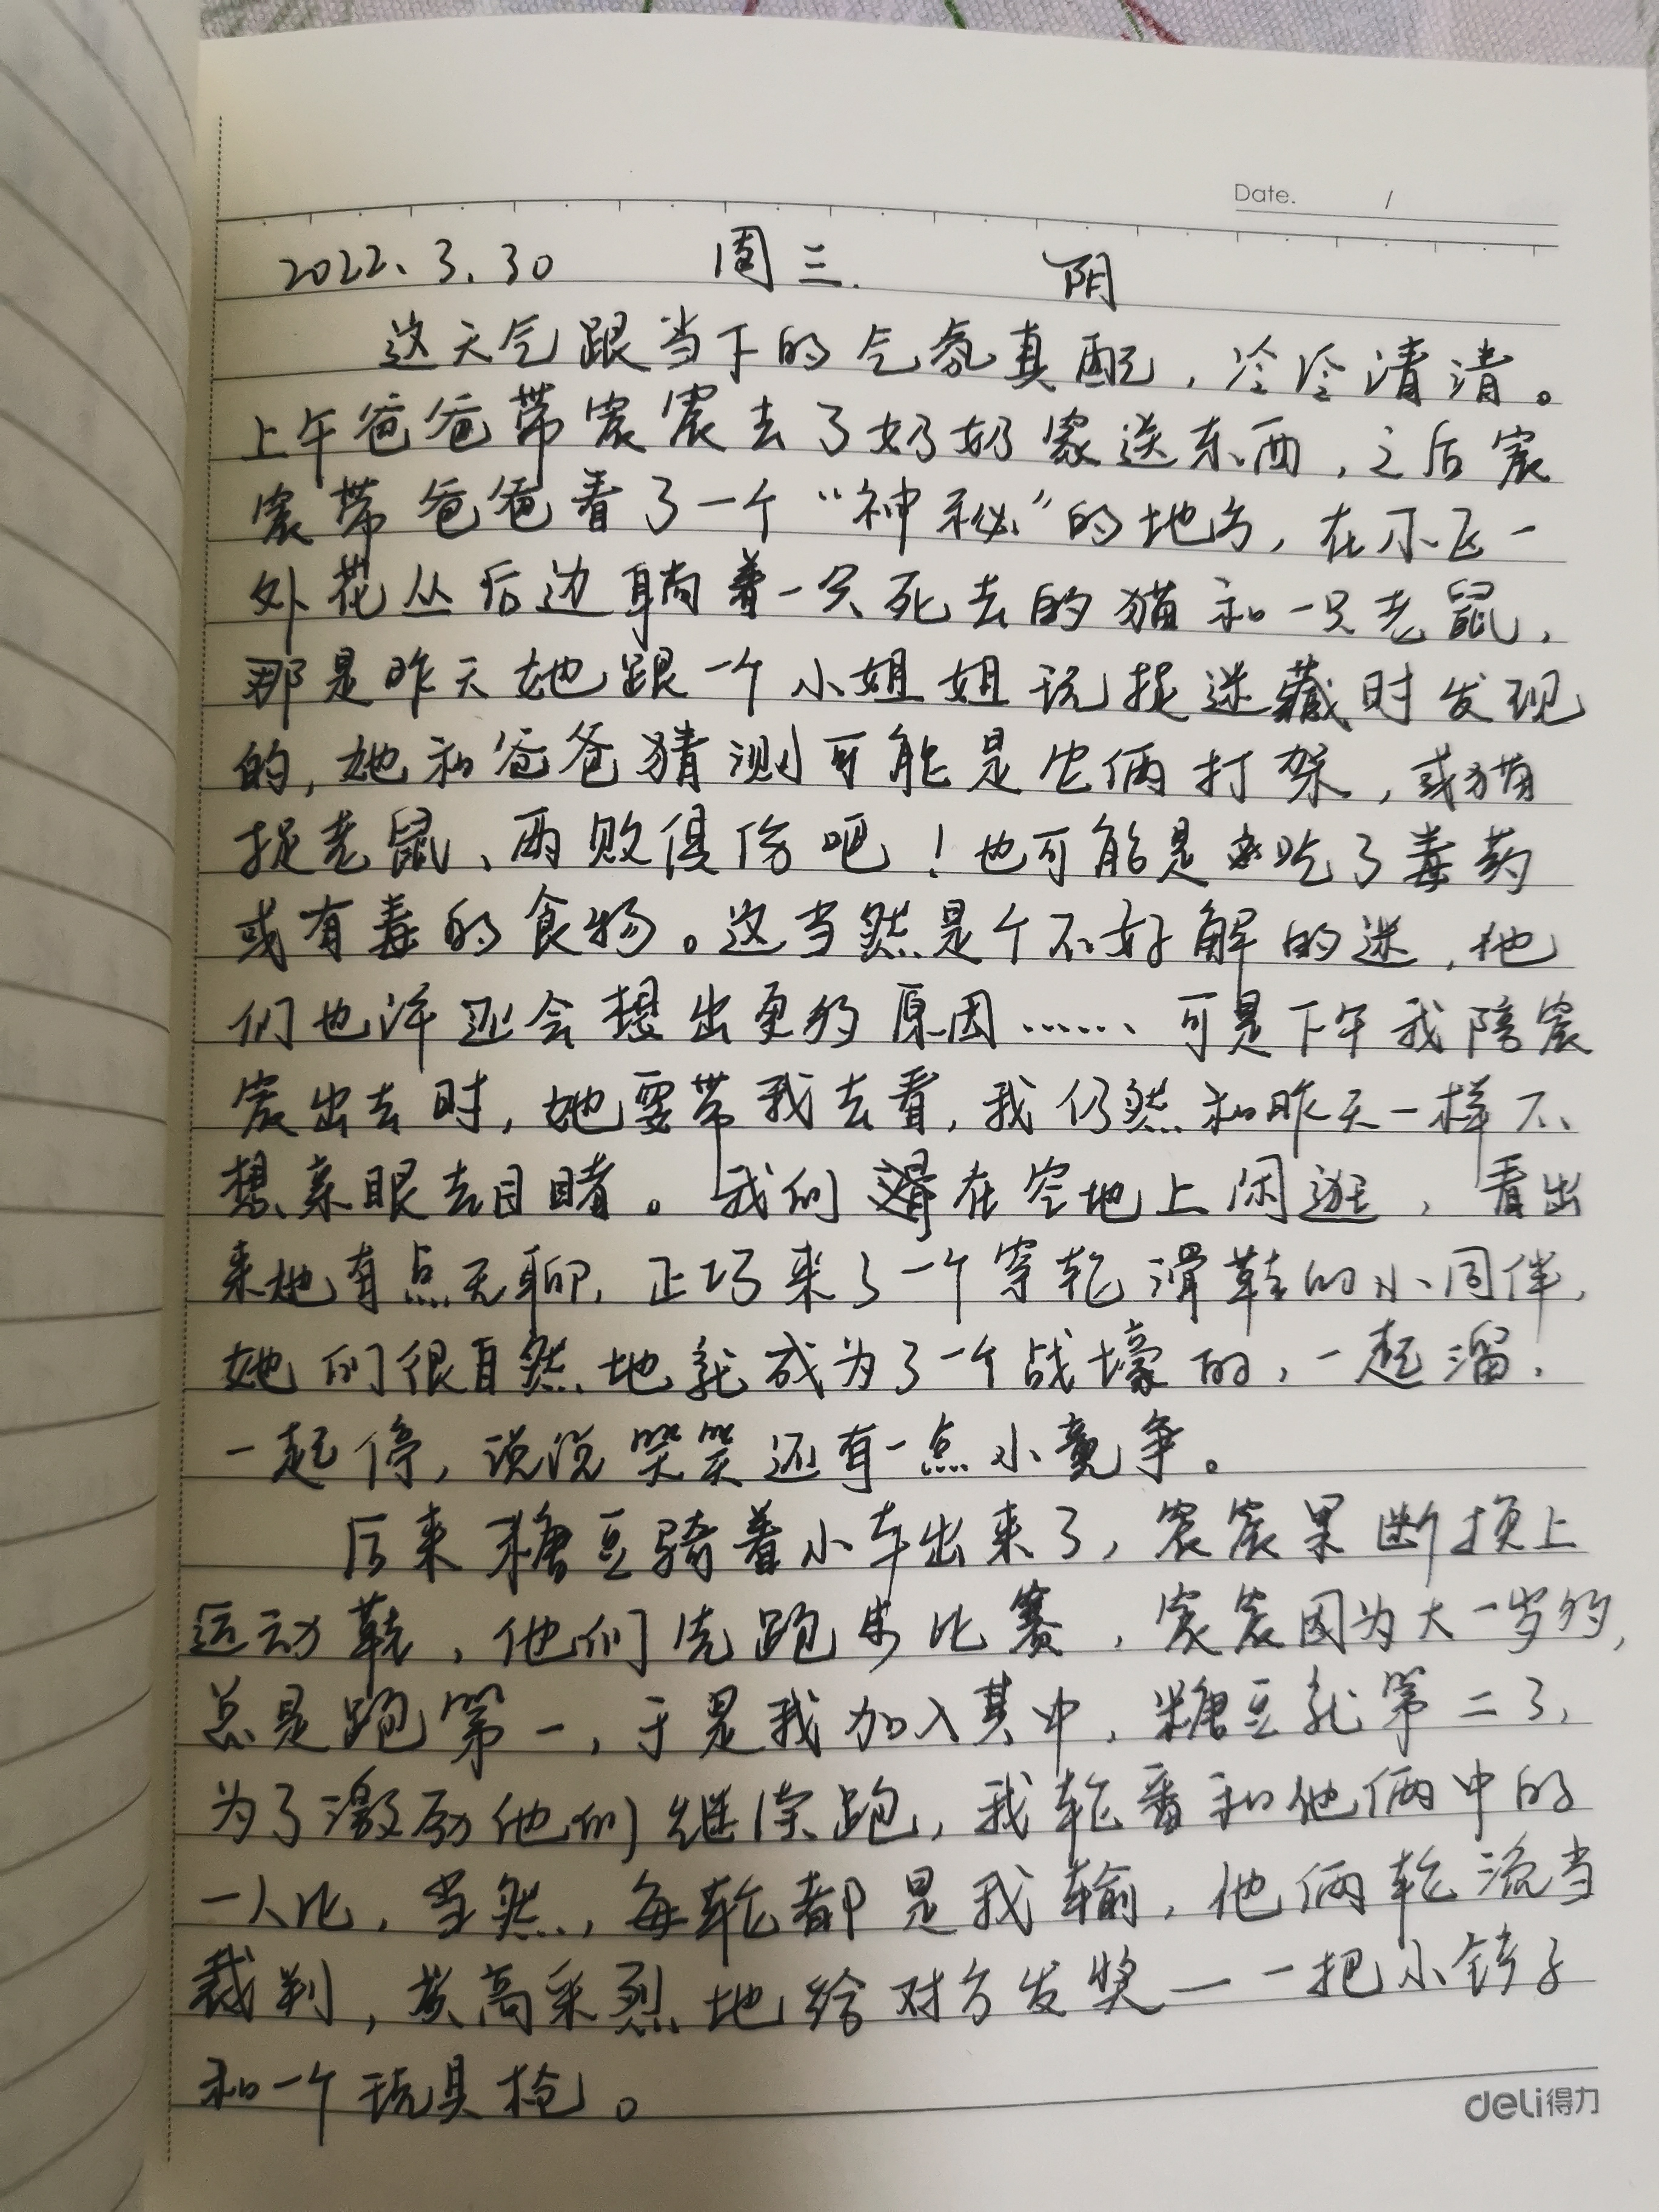 Date. /
2022.3.30 周三. 阴
这天气跟当下的气氛真配，冷冷清清。
上午爸爸带宸宸去了奶奶家送东西，之后宸
宸带爸爸看了一个“神秘”的地方，在小区一
处花丛后边躺着一只死去的猫和一只老鼠，
那是昨天她跟一个小姐姐玩捉迷藏时发现
的，她和爸爸猜测可能是它俩打架，或猫
捉老鼠、两败俱伤吧！也可能是吃了毒药
或有毒的食物。这当然是个不好解的迷，他
们也许还会想出更多的原因……可是下午我陪宸
宸出去时，她要带我去看，我仍然和昨天一样不
想亲眼去目睹。我们在空地上闲逛，看出
来她有点无聊，正巧来了一个穿轮滑鞋的小同伴，
她们很自然地就成为了一个战壕的，一起溜，
一起停，说说笑笑还有一点小竞争。
后来糖豆骑着小车出来了，宸宸果断换上
运动鞋，他们先跑步比赛，宸宸因为大一岁多，
总是跑第一，于是我加入其中，糖豆就第二了，
为了激励他们继续跑，我轮番和他俩中的
一人比，当然，每轮都是我输，他俩轮流当
裁判，兴高采烈地给对方发奖——一把小铲子
和一个玩具枪。
deli得力